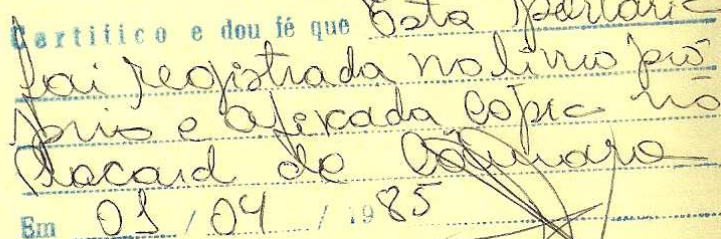 Certifico e dou fé que Esta Portaria
foi registrada no livro pró
prio e afixada copia no
Placard da Câmara
Em 01 / 04 / 1985